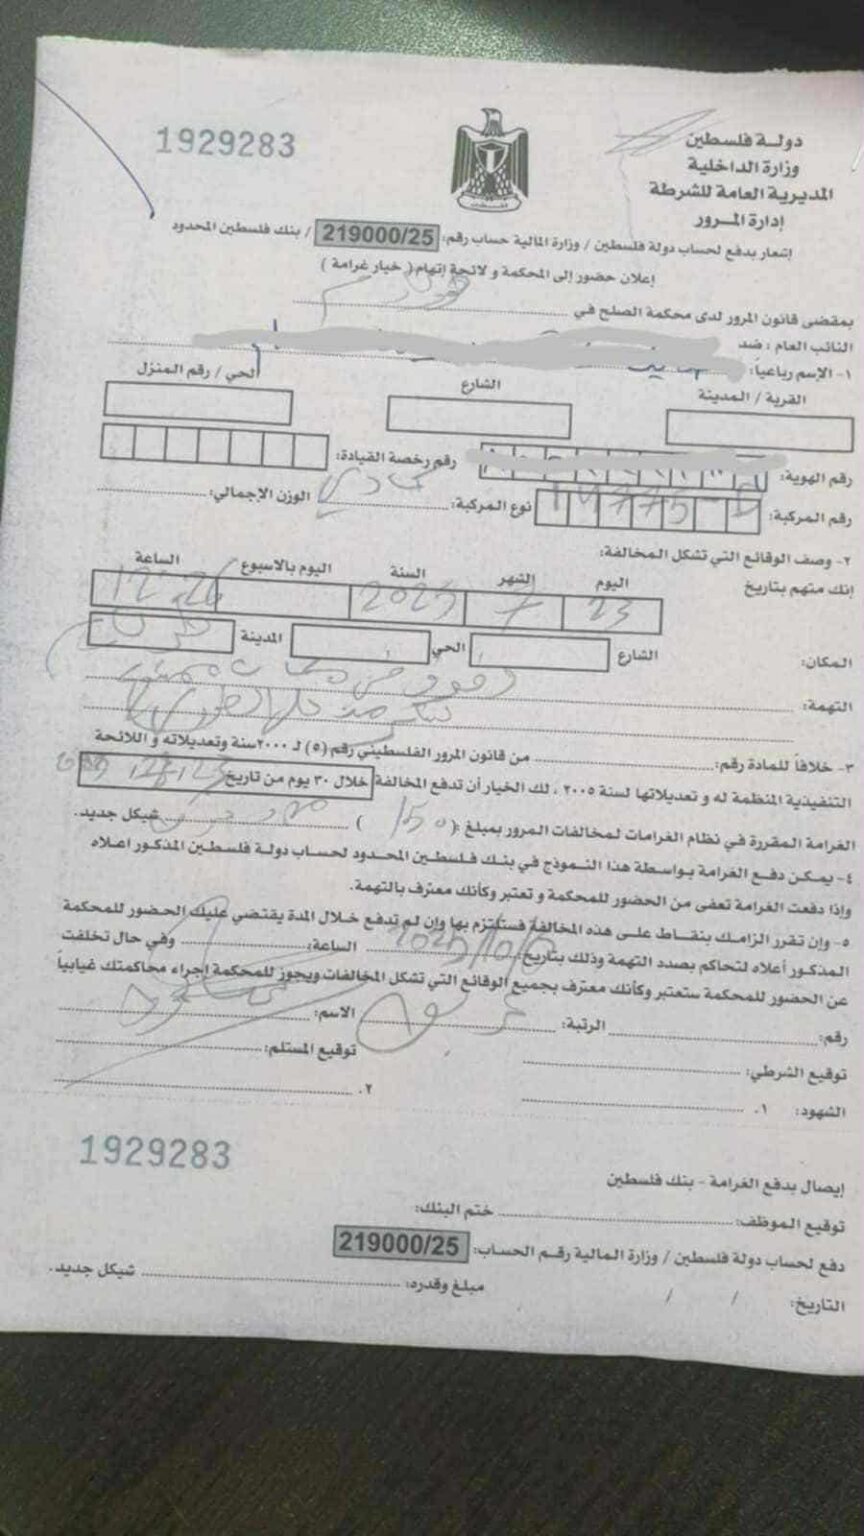 دولة فلسطين
وزارة الداخلية
المديرية العامة للشرطة
إدارة المرور
1929283
فلسطين
إشعار بدفع لحساب دولة فلسطين / وزارة المالية حساب رقم: 219000/25 / بنك فلسطين المحدود
إعلان حضور إلى المحكمة و لائحة إتهام ( خيار غرامة )
بمقضى قانون المرور لدى محكمة الصلح في
النائب العام : ضد
١- الإسم رباعياً:
القرية / المدينة الشارع الحي / رقم المنزل
رقم الهوية: رقم رخصة القيادة:
رقم المركبة: نوع المركبة: الوزن الإجمالي:
٢- وصف الوقائع التي تشكل المخالفة:
إنك متهم بتاريخ اليوم الشهر السنة اليوم بالاسبوع الساعة
23 7 2025 12:26
المكان: الشارع الحي المدينة
التهمة:
٣- خلافاً للمادة رقم: من قانون المرور الفلسطيني رقم (٥) لـ ٢٠٠٠سنة وتعديلاته و اللائحة
التنفيذية المنظمة له و تعديلاتها لسنة ٢٠٠٥ ، لك الخيار أن تدفع المخالفة خلال ٣٠ يوم من تاريخ
الغرامة المقررة في نظام الغرامات لمخالفات المرور بمبلغ :( 150 ) شيكل جديد.
٤- يمكن دفع الغرامة بواسطة هذا النموذج في بنك فلسطين المحدود لحساب دولة فلسطين المذكور اعلاه
وإذا دفعت الغرامة تعفى من الحضور للمحكمة و تعتبر وكأنك معترف بالتهمة.
٥- وإن تقرر الزامك بنقاط على هذه المخالفة فستلتزم بها وإن لم تدفع خلال المدة يقتضي عليك الحضور للمحكمة
المذكور أعلاه لتحاكم بصدد التهمة وذلك بتاريخ الساعة: وفي حال تخلفت
عن الحضور للمحكمة ستعتبر وكأنك معترف بجميع الوقائع التي تشكل المخالفات ويجوز للمحكمة إجراء محاكمتك غيابياً
رقم: الرتبة: الاسم:
توقيع الشرطي: توقيع المستلم:
الشهود: ١. ٢.
1929283
إيصال بدفع الغرامة - بنك فلسطين
توقيع الموظف: ختم البنك:
دفع لحساب دولة فلسطين / وزارة المالية رقم الحساب: 219000/25
التاريخ: / / مبلغ وقدره: شيكل جديد.